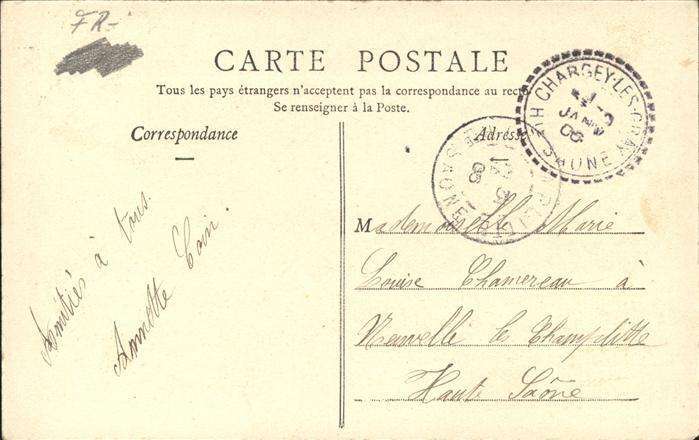 FR-
CARTE POSTALE
Tous les pays étrangers n'acceptent pas la correspondance au recto
Se renseigner à la Poste.
Correspondance
Adresse
CHARGEY-LES-GRAY
JANV
06
HTE SAONE
Amitiés à tous.
Annette
Mademoiselle Marie
Louise Chamereau à
Neuvelle les Champlitte
Haute Saône